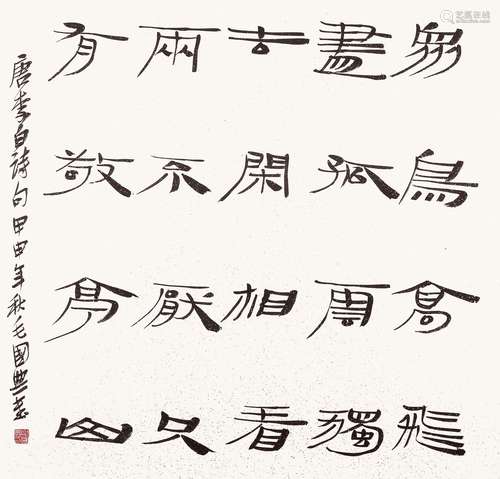 眾鳥高飛
盡孤雲獨
去閑相看
兩不厭只
有敬亭山
唐李白詩句甲申年秋毛國典書
艺狐在线